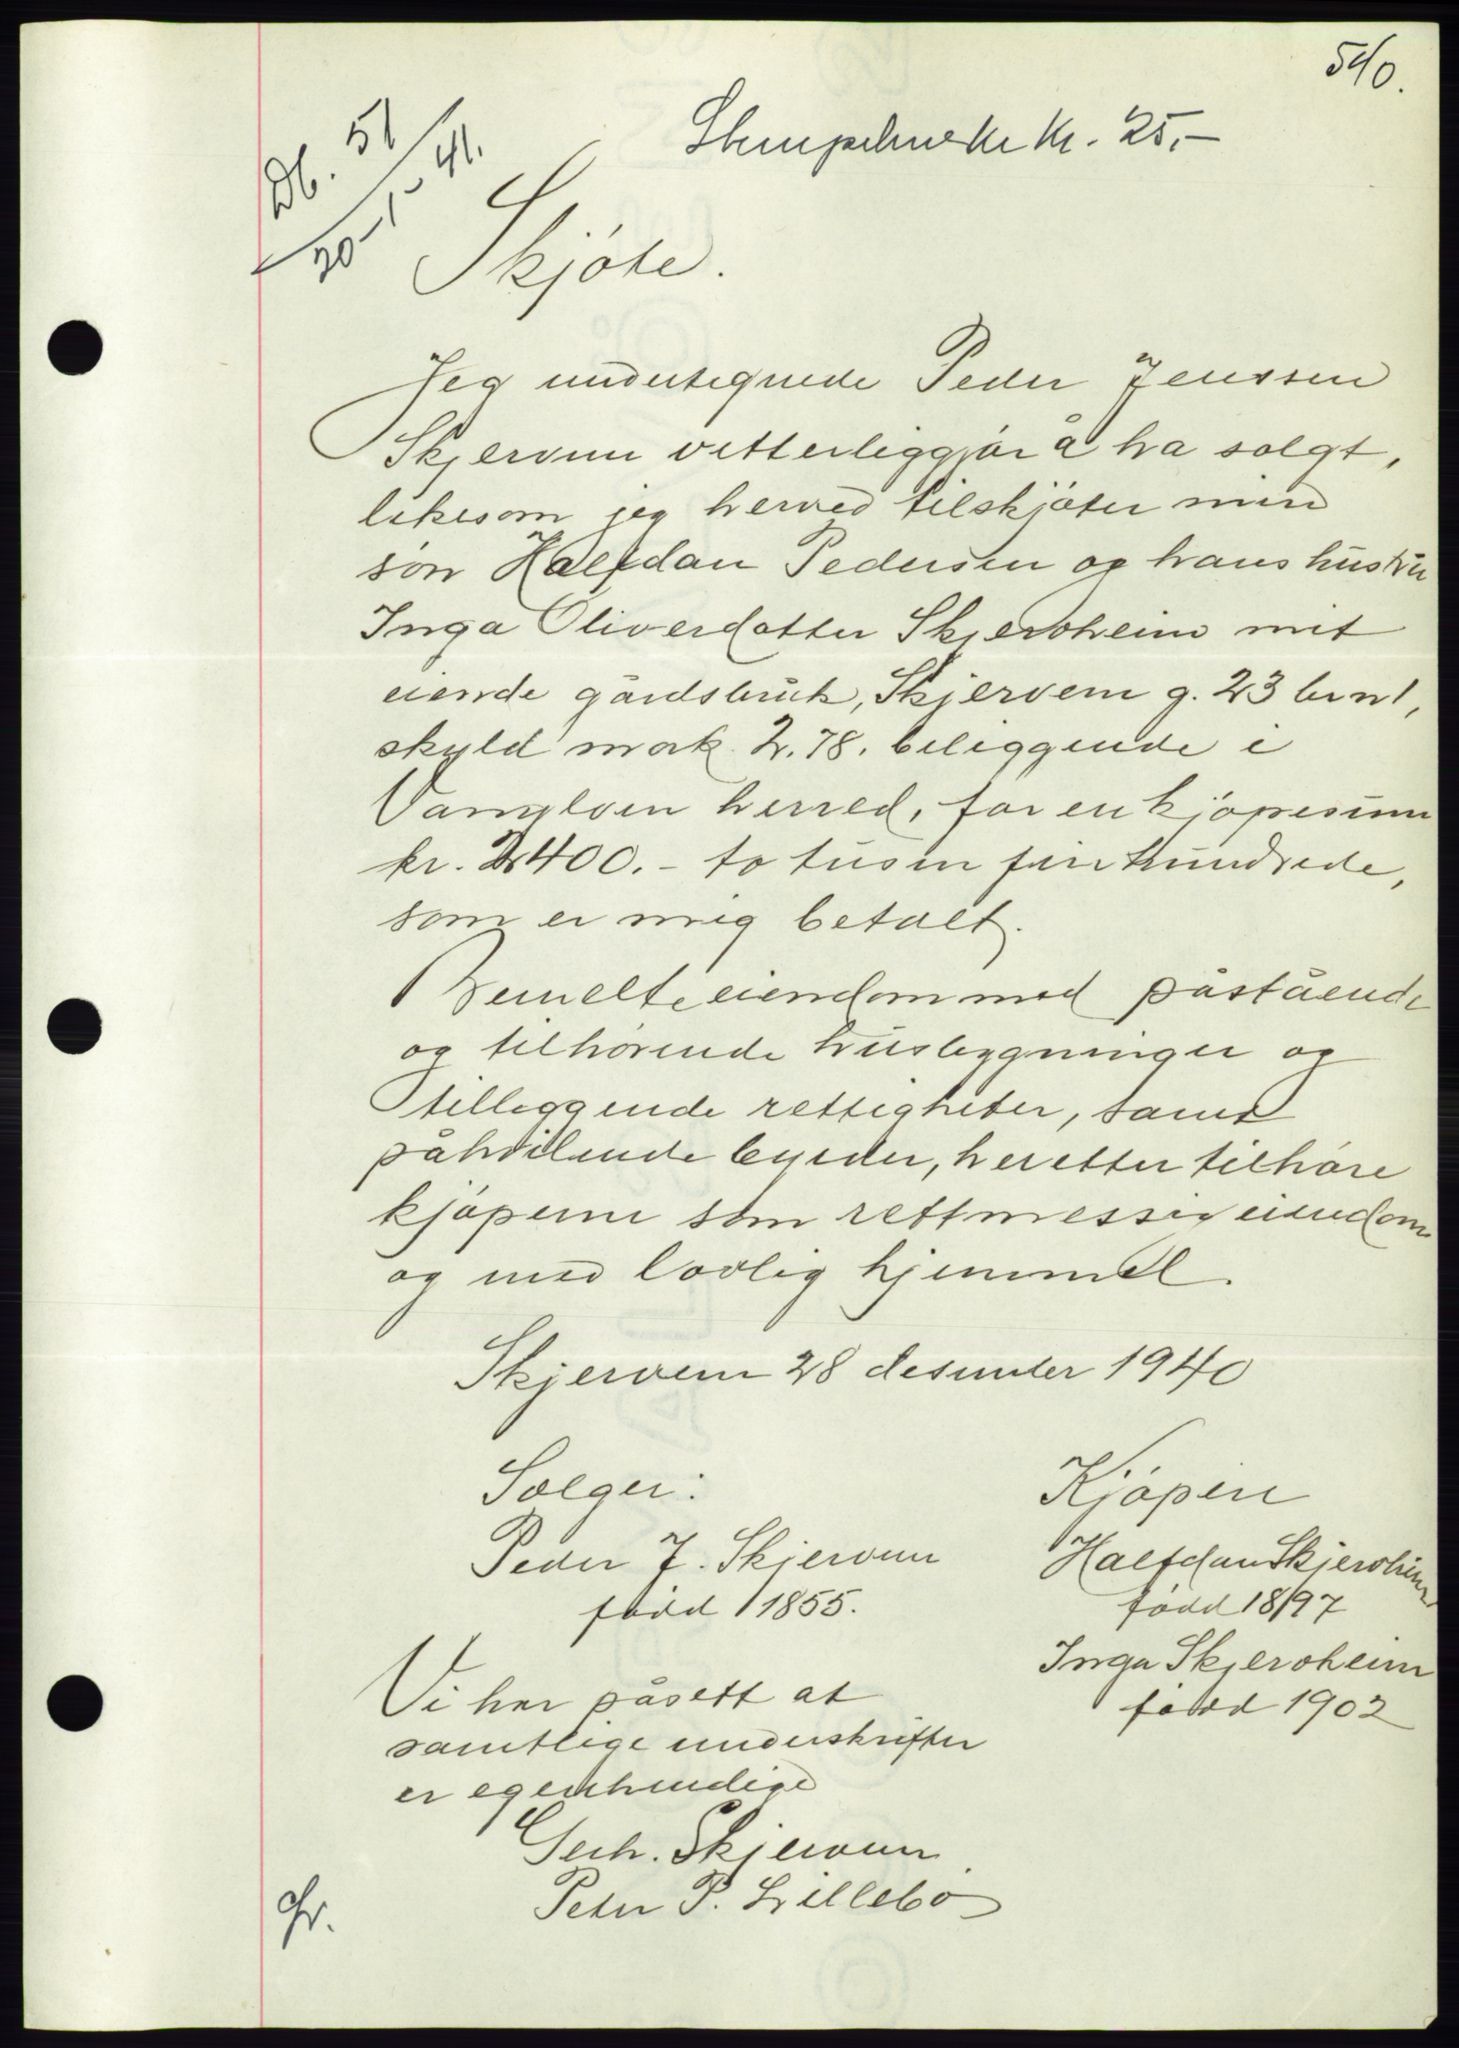 540.
Db. 51
20-1-41.
Stempelmerke kr. 25,-
Skjöte.
Jeg undertegnede Peder Jenssen
Skjervem vitterliggjør å ha solgt,
likesom jeg herved tilskjöter min
sön Halfdan Pedersen og hans hustru
Inga Oliverdatter Skjervheim mit
eiende gårdsbruk, Skjervem g. 23 br n 1,
skyld mark 2.78. beliggende i
Vanylven herred, for en kjöpesum
kr. 2400.- to tusen firehundrede,
som er mig betalt.
Bemelte eiendom med påstående
og tilhörende husbygninger og
tilleggende rettigheter, samt
påhvilende byrder, heretter tilhöre
kjöperne som rettmessig eiendom
og med lovlig hjemmel.
Skjervem 28 desember 1940
Sælger:
Peder J. Skjervem
född 1855.
Kjöpere
Halfdan Skjervheim
född 1897
Inga Skjervheim
född 1902
Vi har påsett at
samtlige underskrifter
er egenhendige
Gerh. Skjervem
Peter P. Lillebö